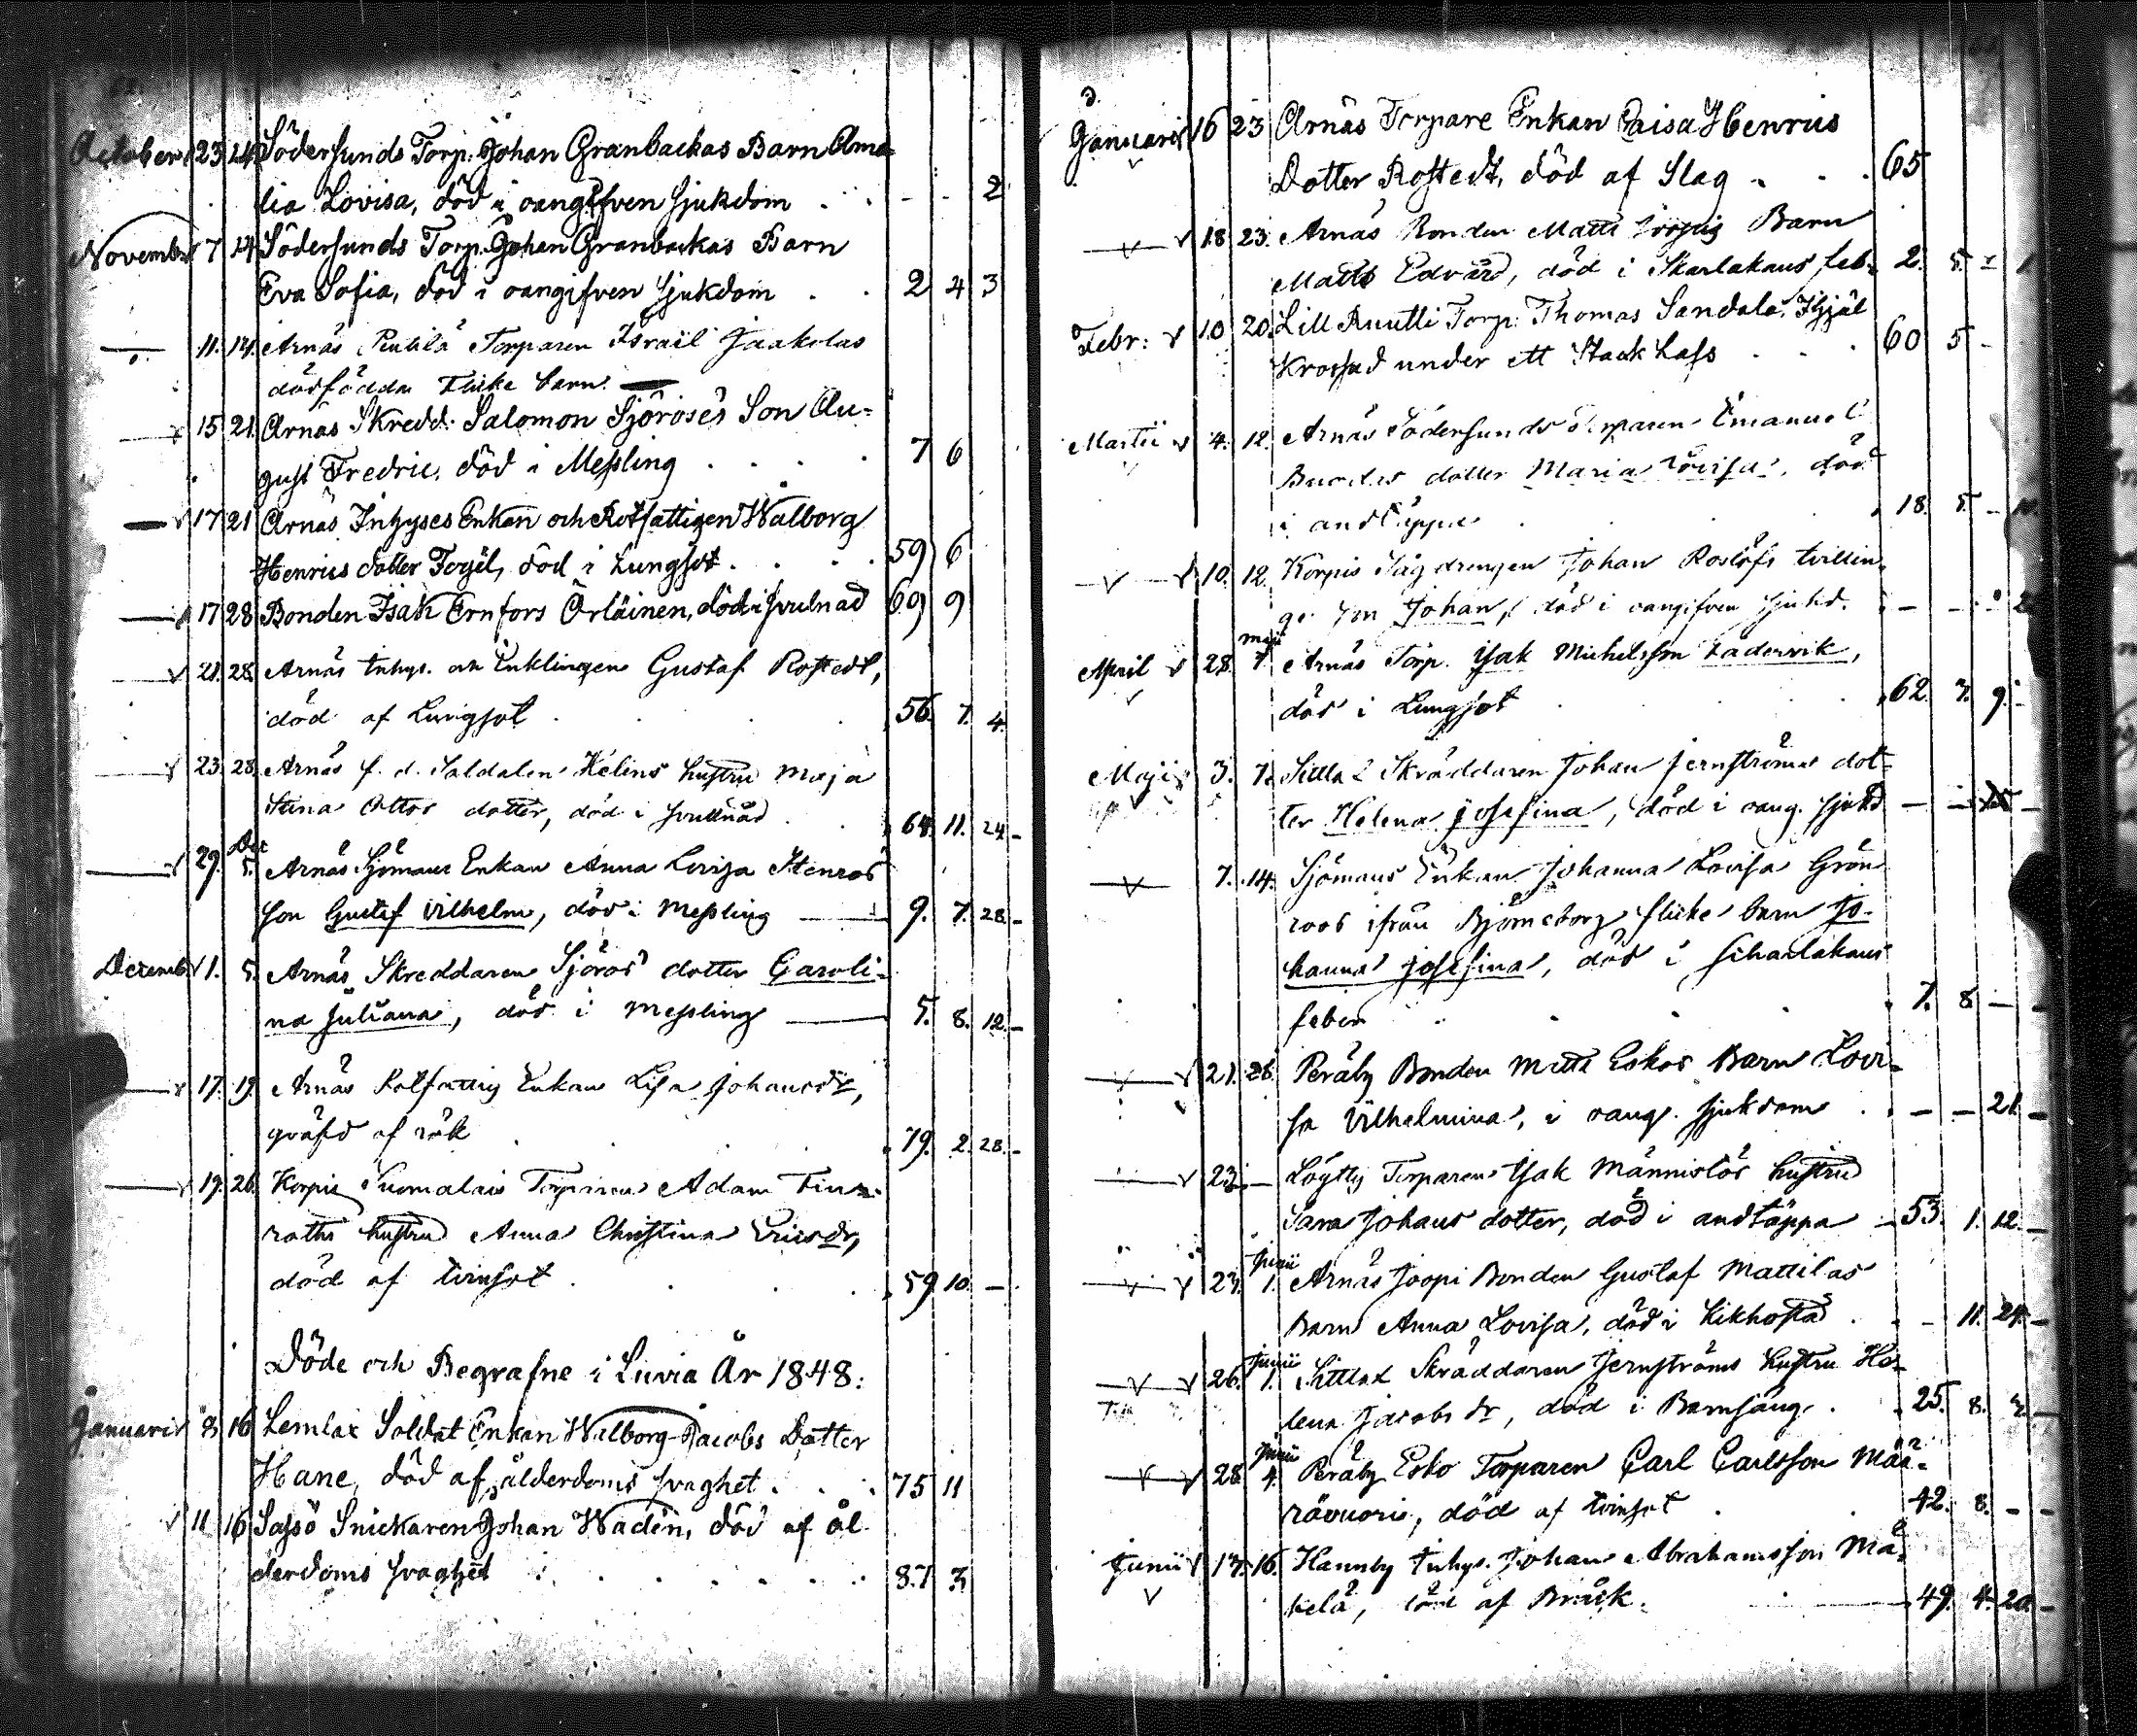 October 23 24 Södersunds Torp. Johan Granbackas Barn Ama
lia Lovisa, död i oangifven sjukdom . . - - 2
Novembr 7 14 Södersunds Torp. Johan Granbackas Barn
Eva Sofia, död i oangifven sjukdom . . 2 4 3
11. 14. Arnäs Penkilä Torparen Israil Jaakolas
dödfödda flicke barn. —
15 21. Arnäs Skredd. Salomon Sjöroses Son Au=
gust Fredric, död i Messling . . . . 7 6
17 21 Arnäs Inhyses Enkan och Rotfattigen Walborg
Henrics dotter Fogel, död i Lungsot . . . . 59 6
17 28 Bonden Isak Ernfors Orläinen, död i svulnad 69 9
21. 28. Arnäs Inhys. och Enklingen Gustaf Rostedt,
död af Lungsot . . . 56. 7. 4.
23. 28. Arnäs f. d. Soldaten Helins hustru Maja
Stina Ottos dotter, död i svullnad . . 64. 11. 24 -
29. Dec 5. Arnäs Sjömans Enkan Anna Lovisa Stenros
son Gustaf Vilhelm, död i Messling — 9. 7. 28 -
Decemb 1. 5. Arnäs Skreddaren Sjöros dotter Caroli=
na Juliana, död i Messling — 5. 8. 12. -
17. 19. Arnäs Rotfattig Enkan Lisa Johansdr,
qväfd af rök . . . 79. 2. 28. -
19. 26. Korpis Suomalais Torparen Adam Finn
roths hustru Anna Christina Ericsdr,
död af tvinsot . . . 59 10. -
Döde och Begrafne i Luvia År 1848:
Januari 8 16 Lemlax Soldat Enkan Walborg Jacobs Dotter
Hane, död af ålderdoms svaghet . . . 75 11
11 16 Sassö Snickaren Johan Wadén, död af ål
derdoms svaghet . . . . . . 87 3
Januari 16 23 Arnäs Torpare Enkan Caisa Henrics
Dotter Rostedt, död af Slag . . . 65
18 23. Arnäs Bonden Matts Barn
Matts Edvard, död i Skarlakans feb. 2. 5. - 1
Febr: 10 20. Lill Ruutti Torp. Thomas Sandala, Ihjäl
krossad under ett Stock Lass . . . 60 5 -
Martii 4. 12. Arnäs Södersunds Torparen Emanuel
dotter Maria Lovisa, död
i andtäppa . . . 18. 5. -
10. 12. Korpis Sågdrengen Johan Roslöfs tvillin
ge son Johan, död i oangifven sjukd. - - - 2
April 28. maji 7. Arnäs Torp. Isak Michelsson Ladervik,
död i Lungsot . . . 62. 7. 9. -
Maji 3. 7. Sittlax Skräddaren Johan Jernströms dot=
ter Helena Josefina, död i oang. sjukd - -
7. 14. Sjömans Enkan Johanna Lovisa Grön
roos ifrån Björneborg flicke barn Jo-
hanna Josefina, död i scharlakans
feber . . . 7. 8 - -
21. 28. Peräby Bonden Matts Eskos Barn Lovi=
sa Vilhelmina, i oang. sjukdom . . - - 21. -
23. - Löytty Torparen Isak Männistös hustru
Sara Johans dotter, död i andtäppa - 53. 1. 12. -
27. Junii 1. Arnäs Joopi Bonden Gustaf Mattilas
Barn Anna Lovisa, död i kikhosta . . - 11. 24. -
26. Junii 1. Sittlax Skräddaren Jernströms hustru He=
lena Jacobs dr, död i Barnsäng . . 25. 8. 7. -
28. Junii 4. Peräby Esko Torparen Carl Carlsson Mää=
rävuori, död af tvinsot . . 42. 8. - -
Junii 13. 16. Hannby Inhys. Johan Abrahamsson Mä=
kelä, död af Bråck. — 49. 4. 20. -